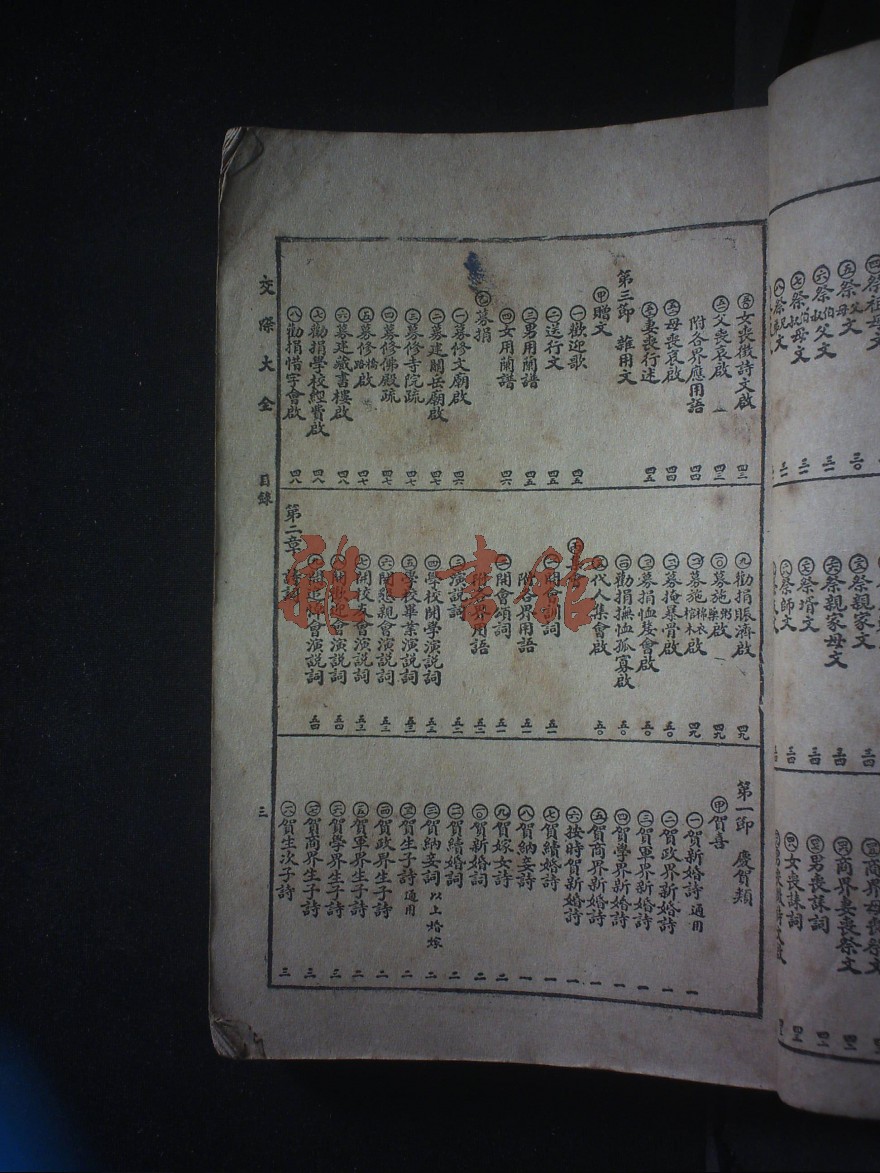 女喪徵詩文啟 四三
父喪哀啟 四三
附各界應用語 四四
母喪哀啟 四四
妻喪行述 四五
第三節 雜用文
甲 贈文
一 歡迎歌 四五
二 送行文 四五
三 男用蘭譜 四五
四 女用蘭譜 四六
乙 募捐
一 募修文廟啟 四六
二 募建關岳廟啟 四七
三 募修寺院疏 四七
四 募修佛殿疏 四七
五 募修橋路啟 四七
六 募建藏書樓啟 四八
七 勸捐學校經費啟 四八
八 勸捐惜字會啟 四八
九 勸捐賑濟啟 四九
一〇 募施粥藥啟 四九
募施棉衣棺木啟 四九
募掩暴骨啟 五〇
募捐恤嫠會啟 五〇
勸捐撫恤孤寡啟 五〇
代人集會啟 五〇
開會訓詞 五一
附各界用語 五一
二 開會頌詞 五一
附各界用語 五二
三 演說詞 五二
四 學校開學演說詞 五三
五 學校畢業演說詞 五三
六 開懇親會演說詞 五三
七 開校友會演說詞 五三
開歡迎會演說詞 五四
會演說詞 五四
第二章 詩詞
第一節 慶賀類
甲 賀喜
一 賀新婚詩 通用 一
二 賀政界新婚詩 一
三 賀軍界新婚詩 一
四 賀學界新婚詩 一
五 賀商界新婚詩 一
六 按時賀新婚詩 一
七 賀續婚詩 一
八 賀納妾詩 一
九 賀嫁女詩 二
一〇 賀新婚詞 二
賀續婚詞 二
賀納妾詞 以上婚嫁 二
賀生子詩 通用 二
賀政界生子詩 二
賀軍界生子詩 二
賀學界生子詩 三
賀商界生子詩 三
賀生次子詩 三
交際大全 目錄 三
四 祭祖母文
五 祭父母文
六 祭伯叔父文 三一
七 祭伯叔母文 三一
祭親家文
祭親家母文 三四
祭壻文 三四
祭師文 三四
商界母喪祭文
商界妻喪祭文
男喪誄詞
女喪誄詞
雅·書館